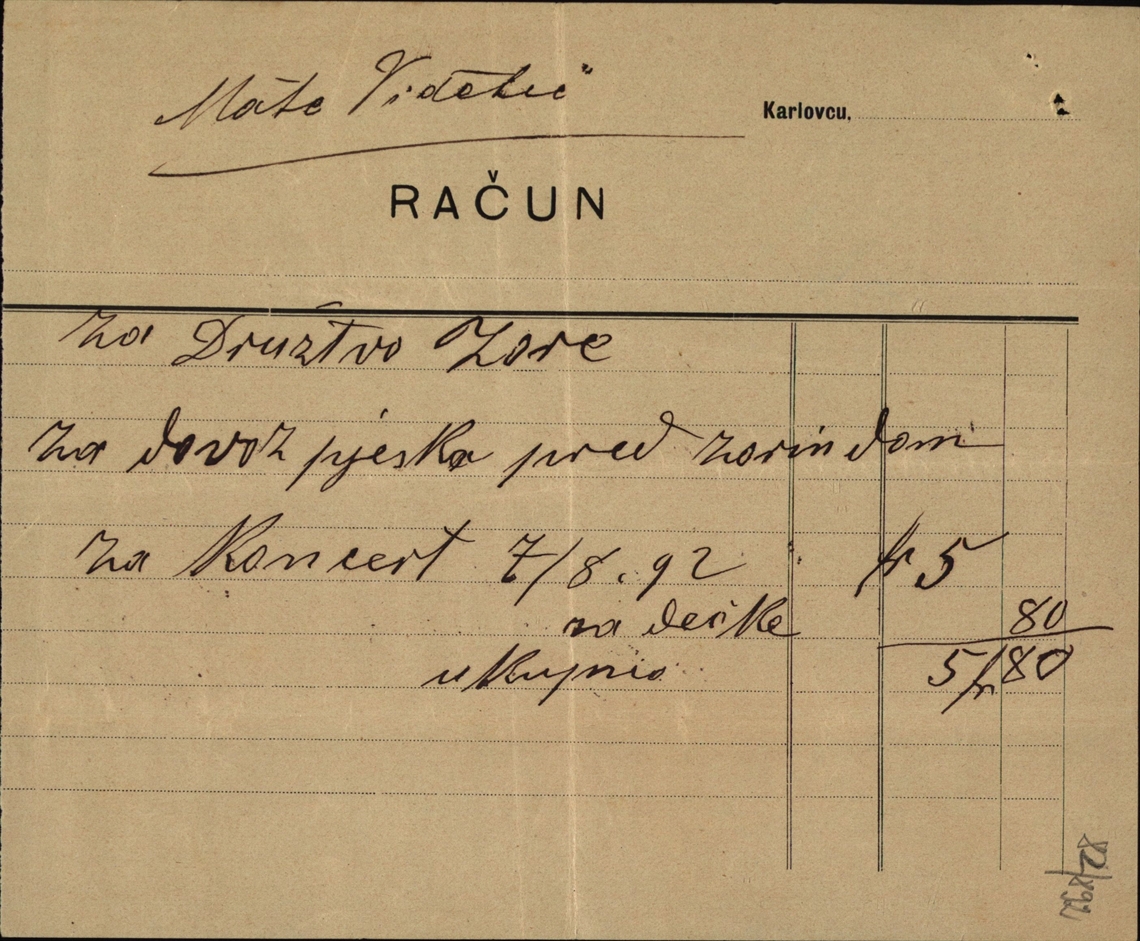 Mate Videtić
Karlovcu,
RAČUN
za Družtvo Zore
za dovoz pjeska pred zorin dom
za Koncert 7/8. 92 fr 5
za deske 80
ukupno 5 fr 80
82/892